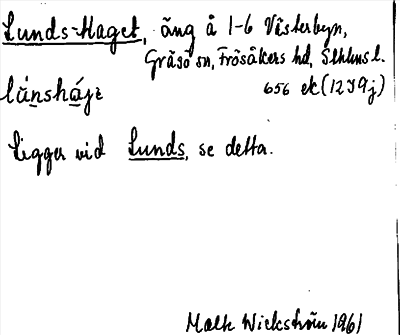 Lunds-Haget, äng å 1-6 Västerbyn,
Gräsö sn, Frösåkers hd, Sthlms l.
656 ek (12 I 9j)
Ligger vid Lunds, se detta.
Wickström 1961